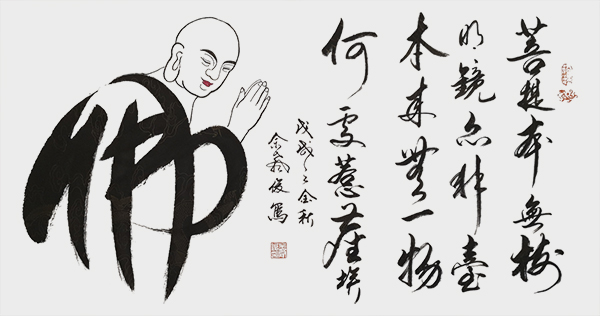 菩提本無樹
明鏡亦非臺
本來無一物
何處惹塵埃
戊戌之金秋
佛